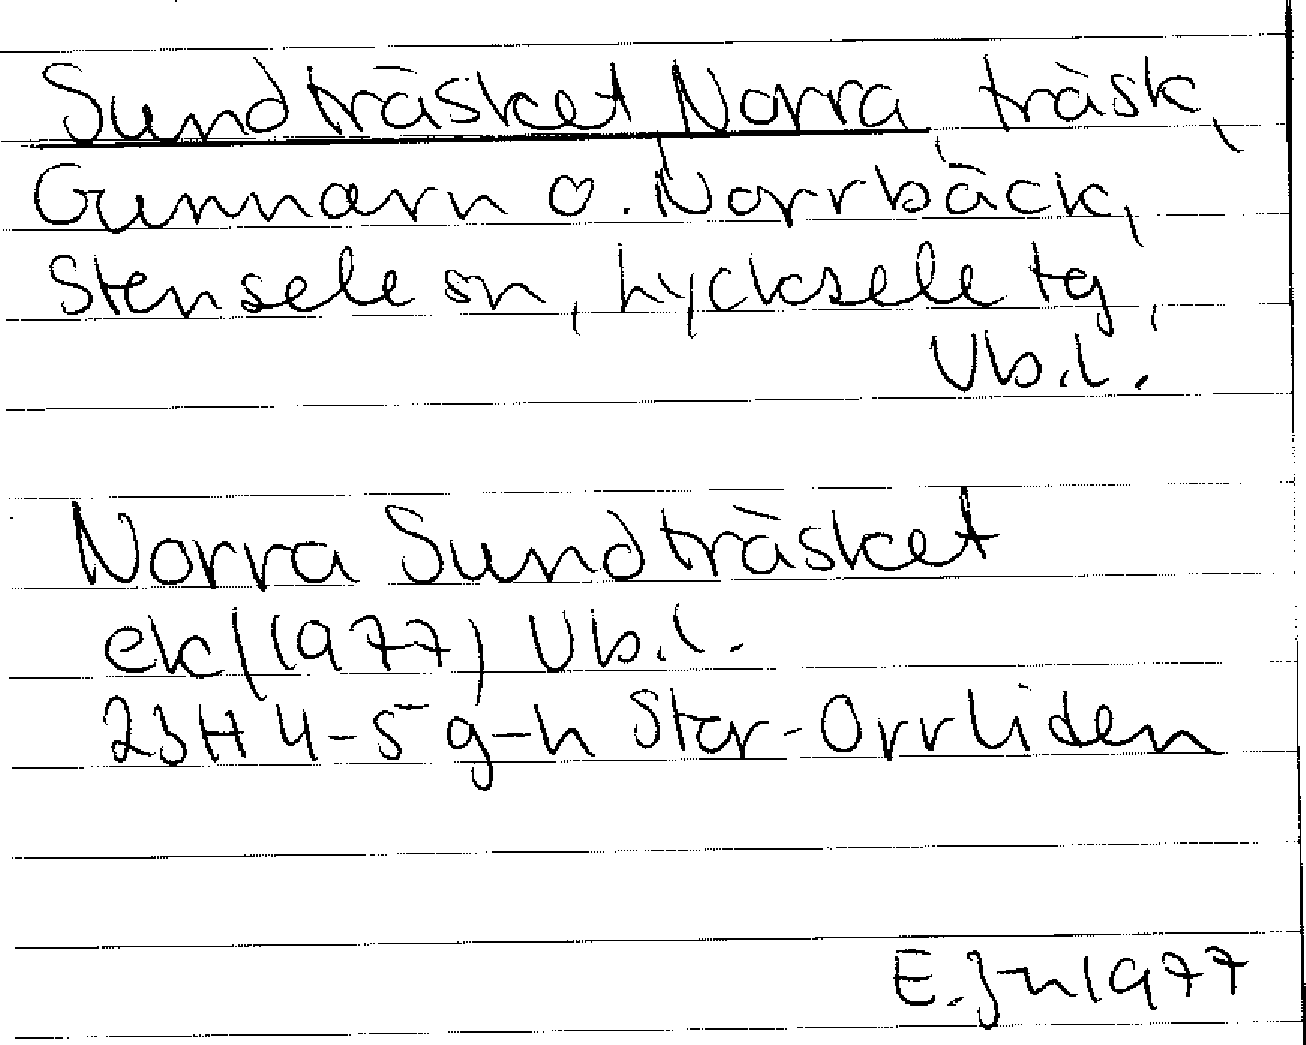 Sundträsket, Norra träsk,
Gunnarn o. Norrbäck,
Stensele sn, Lycksele tg,
Vb.l.
Norra Sundträsket
ek (1977) Vb.l.
23H 4-5 g-h Stor-Orrliden
E. Jn 1977